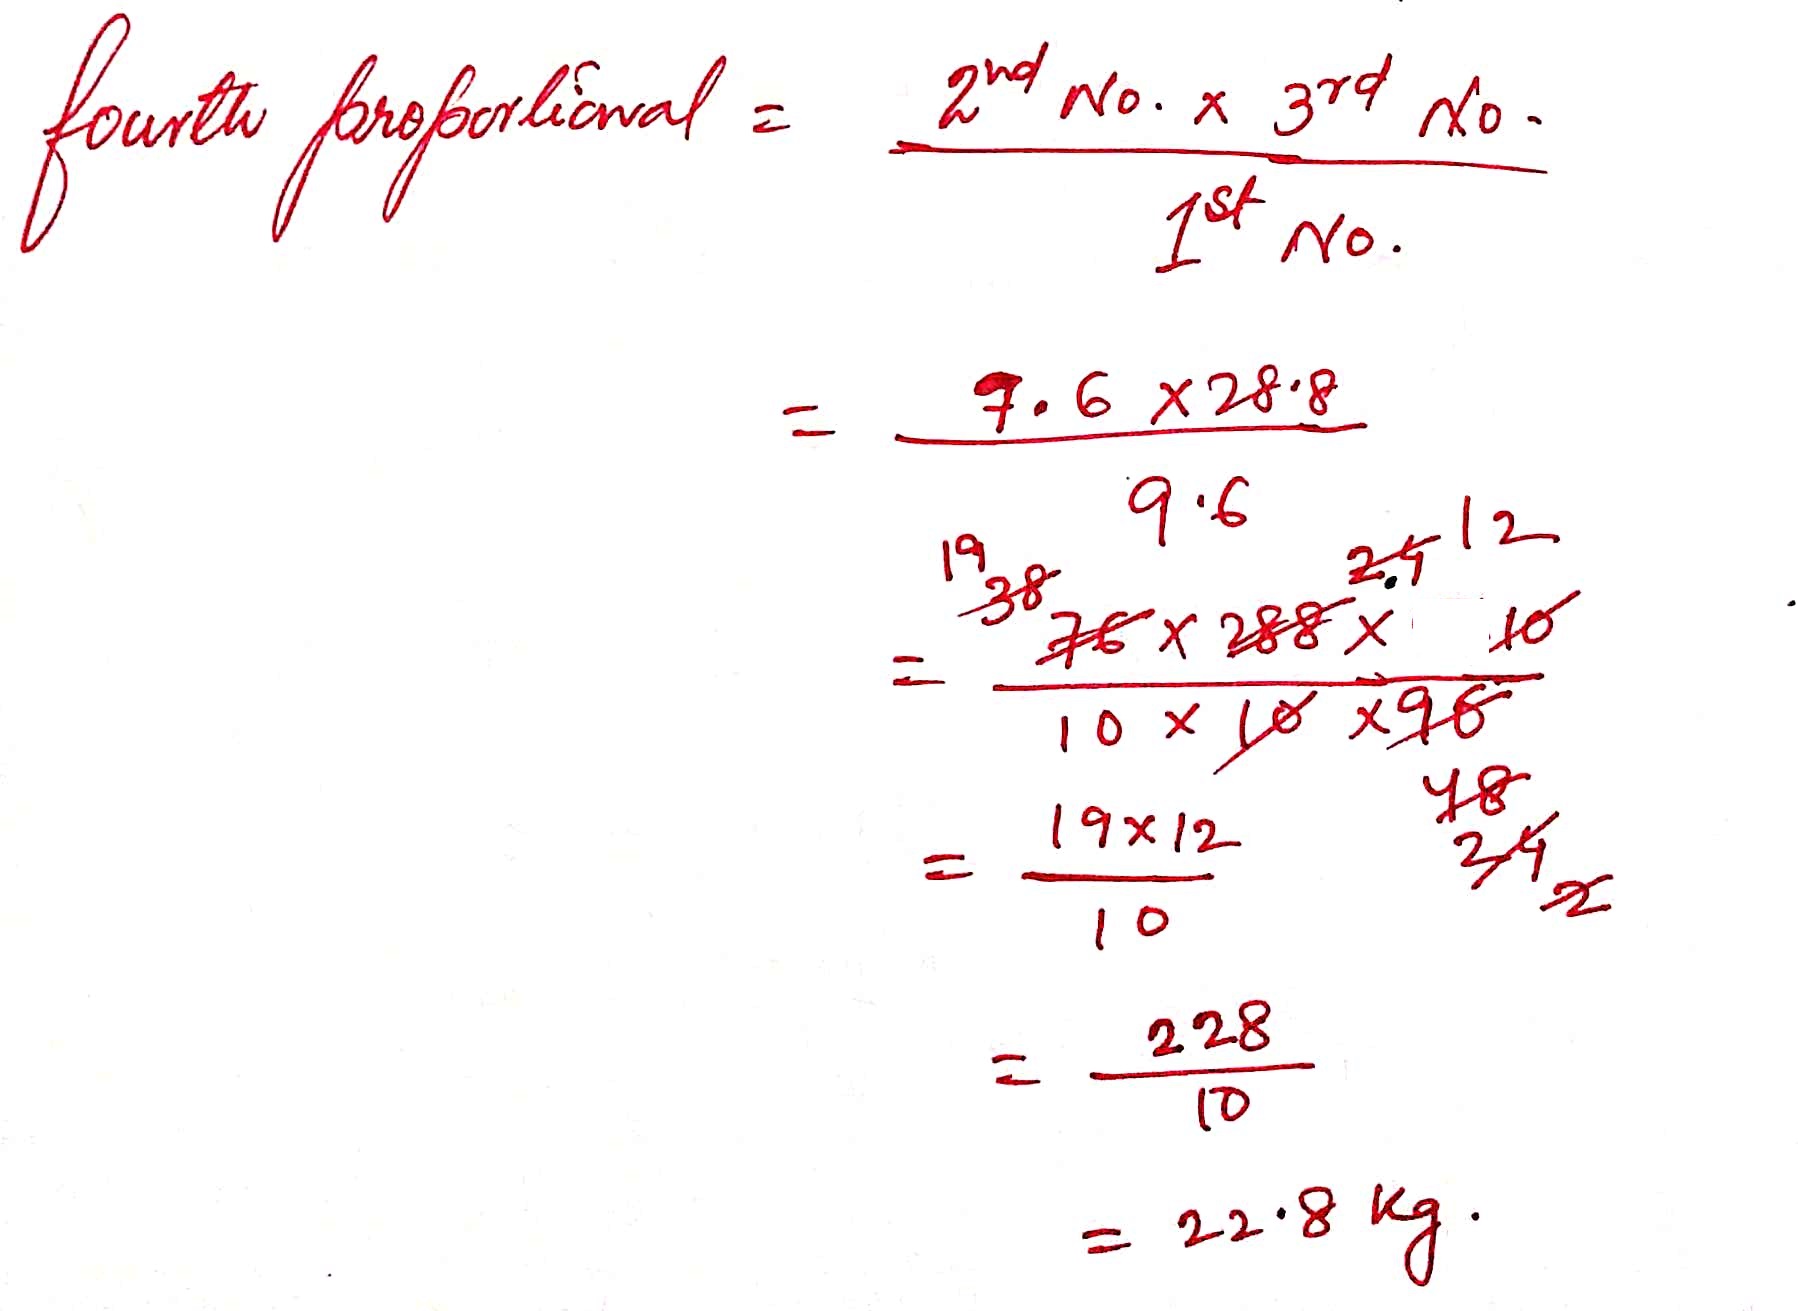 fourth proportional = 2nd No. x 3rd No.
1st No.
= 7.6 x 28.8
9.6
19 38 24 12
= 76 x 288 x 10
10 x 10 x 96
48
24
2
= 19 x 12
10
= 228
10
= 22.8 Kg.